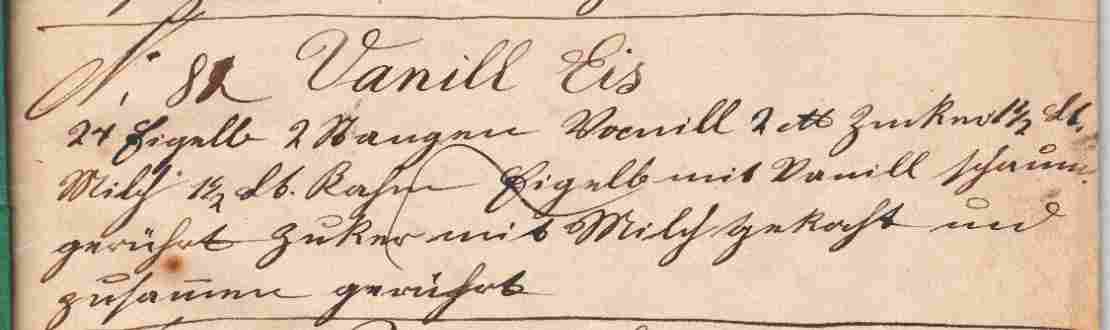 N. 82 Vanill Eis
24 Eigelb 2 Stangen Vanill 2 ℔ Zuker 1½ Lt.
Milch 1½ Lt. Rahm Eigelb mit Vanill schaum.
gerührt Zuker mit Milch gekocht und
zusam̄en gerührt